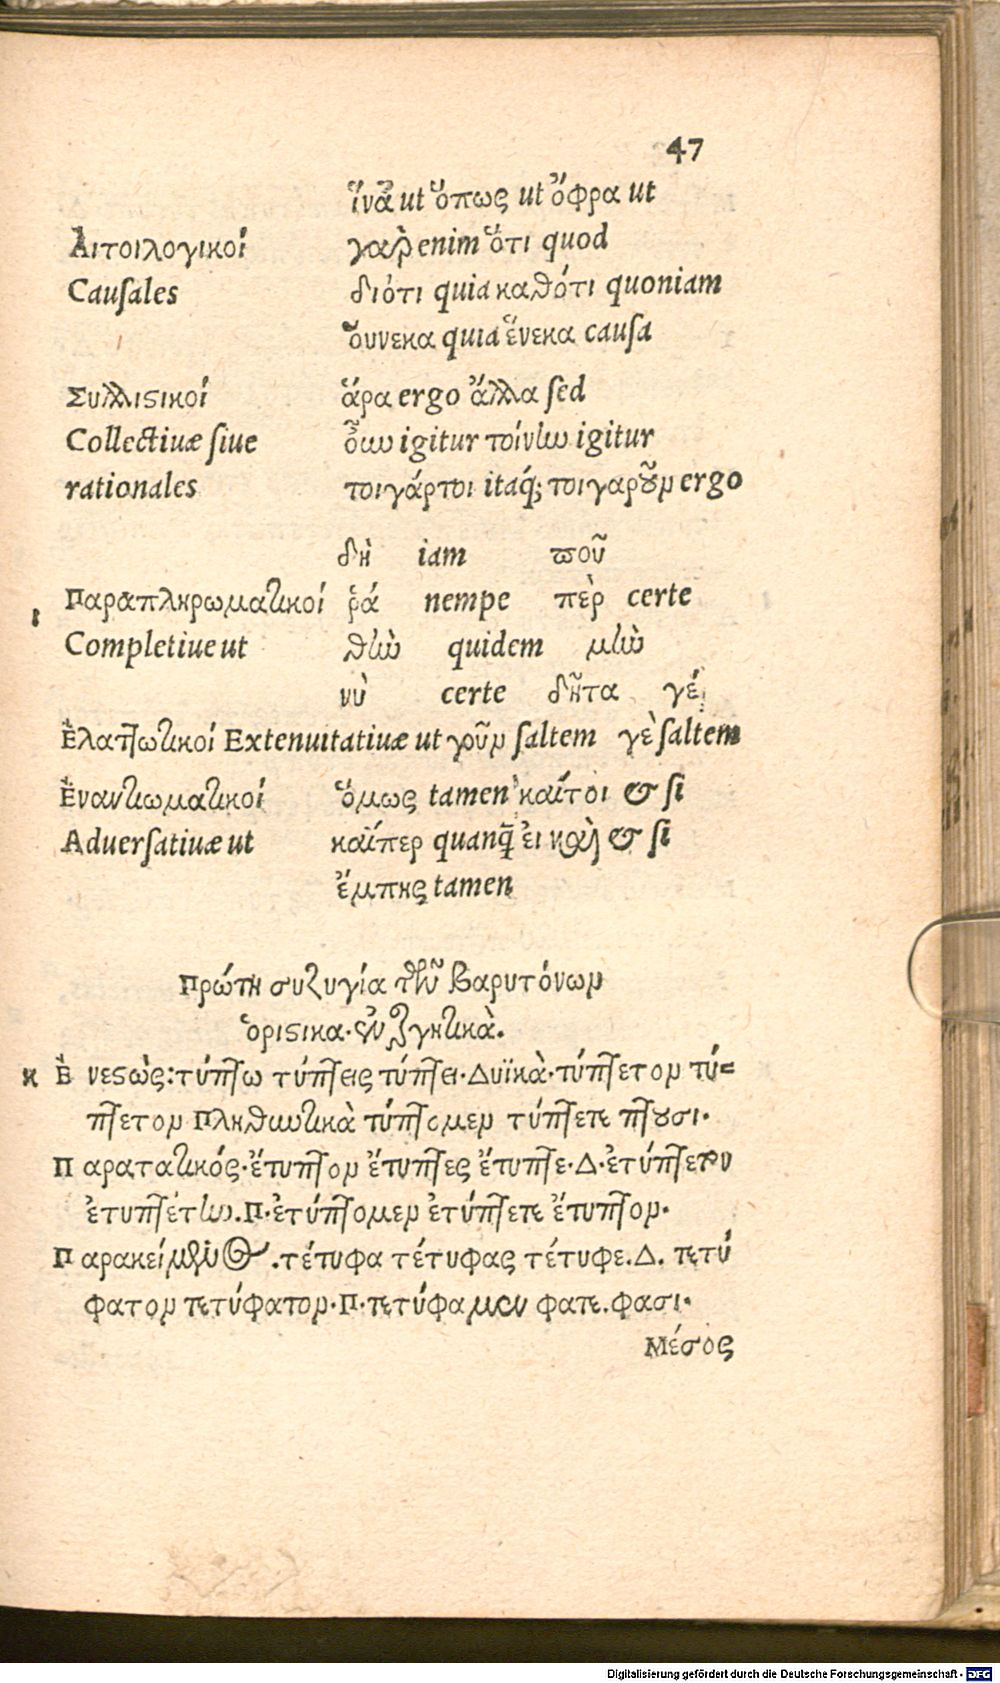 47
ἵνἆ ut ὅπως ut ὄφρα ut
Αἰτοιλογικοί γαρ̀ enim ὅτι quod
Cauſales διότι quia καθότι quoniam
οὕνεκα quia ἕνεκα cauſa
Συλλιϛικοί ἄρα ergo ἄλλα ſed
Collectiuæ ſiue οὖω igitur τοίνυν igitur
rationales τοιγάρτοι itaq́; τοιγαροῦν ergo
δὴ iam ποῦ
Παραπληρωματικοί ῥά nempe πὲρ certe
Completiue ut θὴν quidem μὴν
νὺ certe δῆτα γέ
Ἐλαττωτικοί Extenuitatiuæ ut γοῦν ſaltem γὲ ſaltem
Ἐναντιωματικοί ὅμως tamen καίτοι & ſi
Aduerſatiuæ ut καίπερ quanq̄ ἐι καὶ & ſi
ἔμπης tamen
Πρώτη συζυγία τῶν βαρυτόνων
ὁριϛικα. ἐνεργητικὰ.
κ Ἐνεϛὼς: τύπτω τύπτεις τύπτει. Δυϊκὰ. τύπτετον τύ=
πτετον Πληθυντικὰ τύπτομεν τύπτετε πτουσι.
Παρατατικός. ἔτυπτον ἔτυπτες ἔτυπτε. Δ. ἐτύπτετον
ἐτυπτέτην. Π. ἐτύπτομεν ἐτύπτετε ἔτυπτον.
Παρακείμενος. τέτυφα τέτυφας τέτυφε. Δ. τετύ
φατον τετύφατον. Π. τετύφαμεν φατε. φασι.
Μέσος
Digitalisierung gefördert durch die Deutsche Forschungsgemeinschaft - DFG